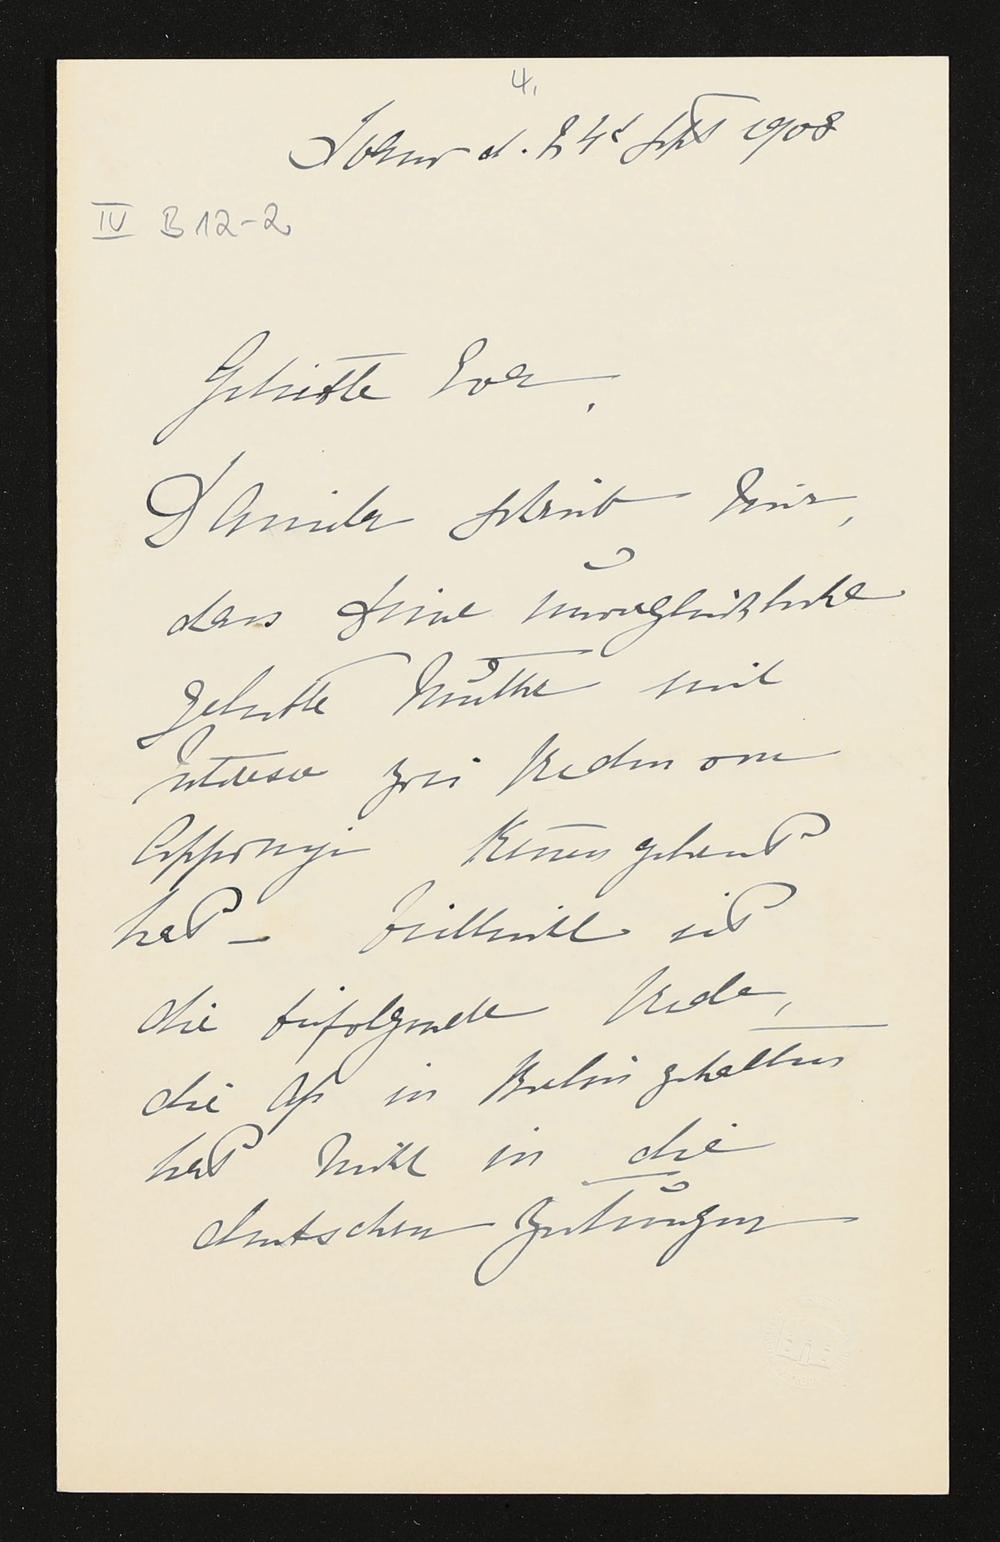 4.
d. 24t Sept 1908
IV B 12-2
Geliebte Eva,
Daniela schrieb mir,
dass Deine unvergleichliche
geliebte Mutter mit
Interesse zwei Reden von
Apponyi kennen gelernt
hat – Vielleicht ist
die beifolgende Rede,
die Ap in Berlin gehalten
hat nicht in die
deutschen Zeitungen